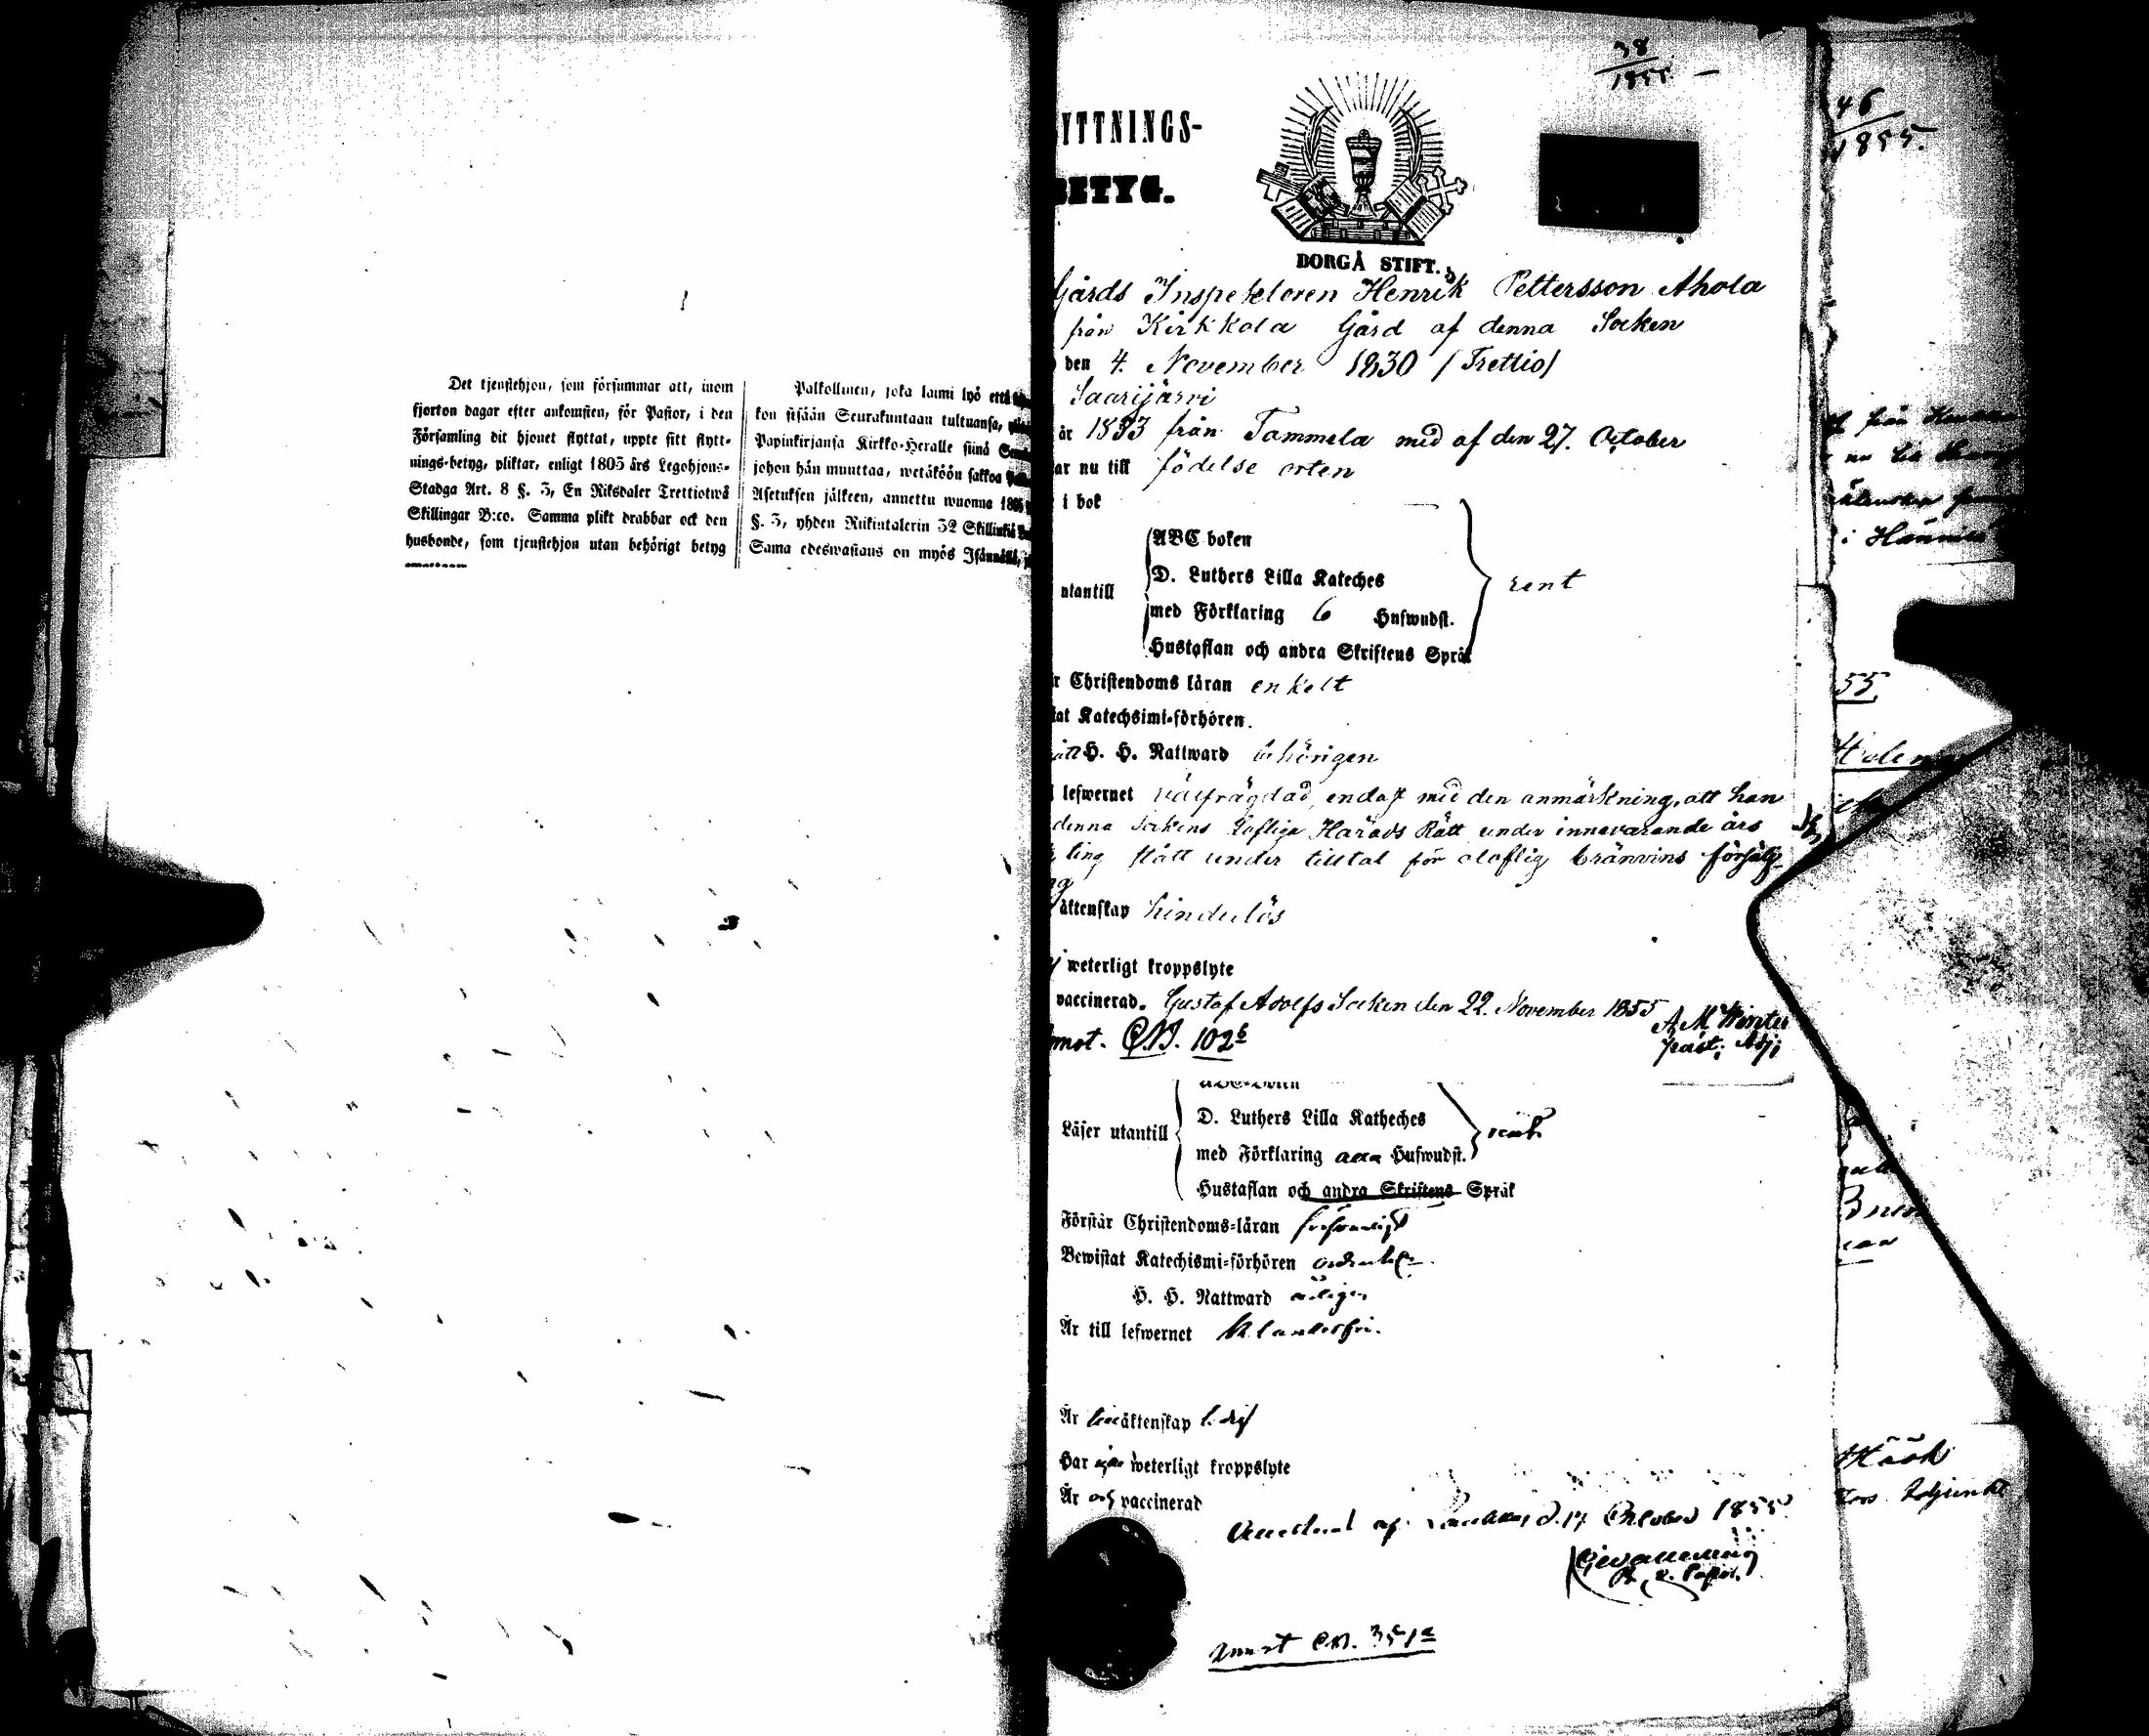 Det tjenstehjon, som försummar att, inom
fjorton dagar efter ankomsten, för Pastor, i den
Församling dit hjonet flyttat, uppte sitt flytt-
nings-betyg, pliktar, enligt 1805 års Legohjons-
Stadga Art. 8 §. 5, En Riksdaler Trettiotwå
Skillingar B:co. Samma plikt drabbar ock den
husbonde, som tjenstehjon utan behörigt betyg
Palkollinen, joka laimi lyö että
kon sisään Seurakuntaan tultuansa,
Papinkirjansa Kirkko-Heralle siinä
johon hän muuttaa, wetäköön sakkoa
Asetuksen jälkeen, annettu wuonna 1805
§. 5, yhden Riikintalerin 32 Skillinkiä
Sama edeswastaus on myös Isännällä,
38
1855.
YTTNINGS-
BETYG.
BORGÅ STIFT.
Gårds Inspektoren Henrik Pettersson Ahola
från Kirkkola Gård af denna Socken
den 4. November 1830 /Trettio/
Saarijärvi
år 1853 från Tammela med af den 27. October
ar nu till födelse orten
i bok
utantill
ABC boken
D. Luthers Lilla Kateches
med Förklaring 6 Hufwudst.
Hustaflan och andra Skriftens Språk
rent
r Christendoms läran enkelt
tat Katechsimi-förhören.
H. H. Nattward behörigen
lefwernet välfrägdad, endast med den anmärkning, att han
denna Sockens Lofliga Härads Rätt under innevarande års
ting stått under tilltal för oloflig bränvins försälj-
ng
äktenskap hinderlös
weterligt kroppslyte
vaccinerad. Gustaf Adolfs Socken den 22. November 1855
A. M. Winter
past. Adj;
nnot. C.B. 102 b
Läser utantill
D. Luthers Lilla Katheches
med Förklaring alla Hufwudst.
Hustaflan och andra Skriftens Språk
Förstår Christendoms-läran försvarligt
Bewistat Katechismi-förhören
H. H. Nattward årligen
Är till lefwernet klanderfri.
Är till äktenskap ledig
Har weterligt kroppslyte
Är och vaccinerad
October 1855.
v. Pastor.
Annot C.B.
46
1855.
från
55
Höök
Adjunkt